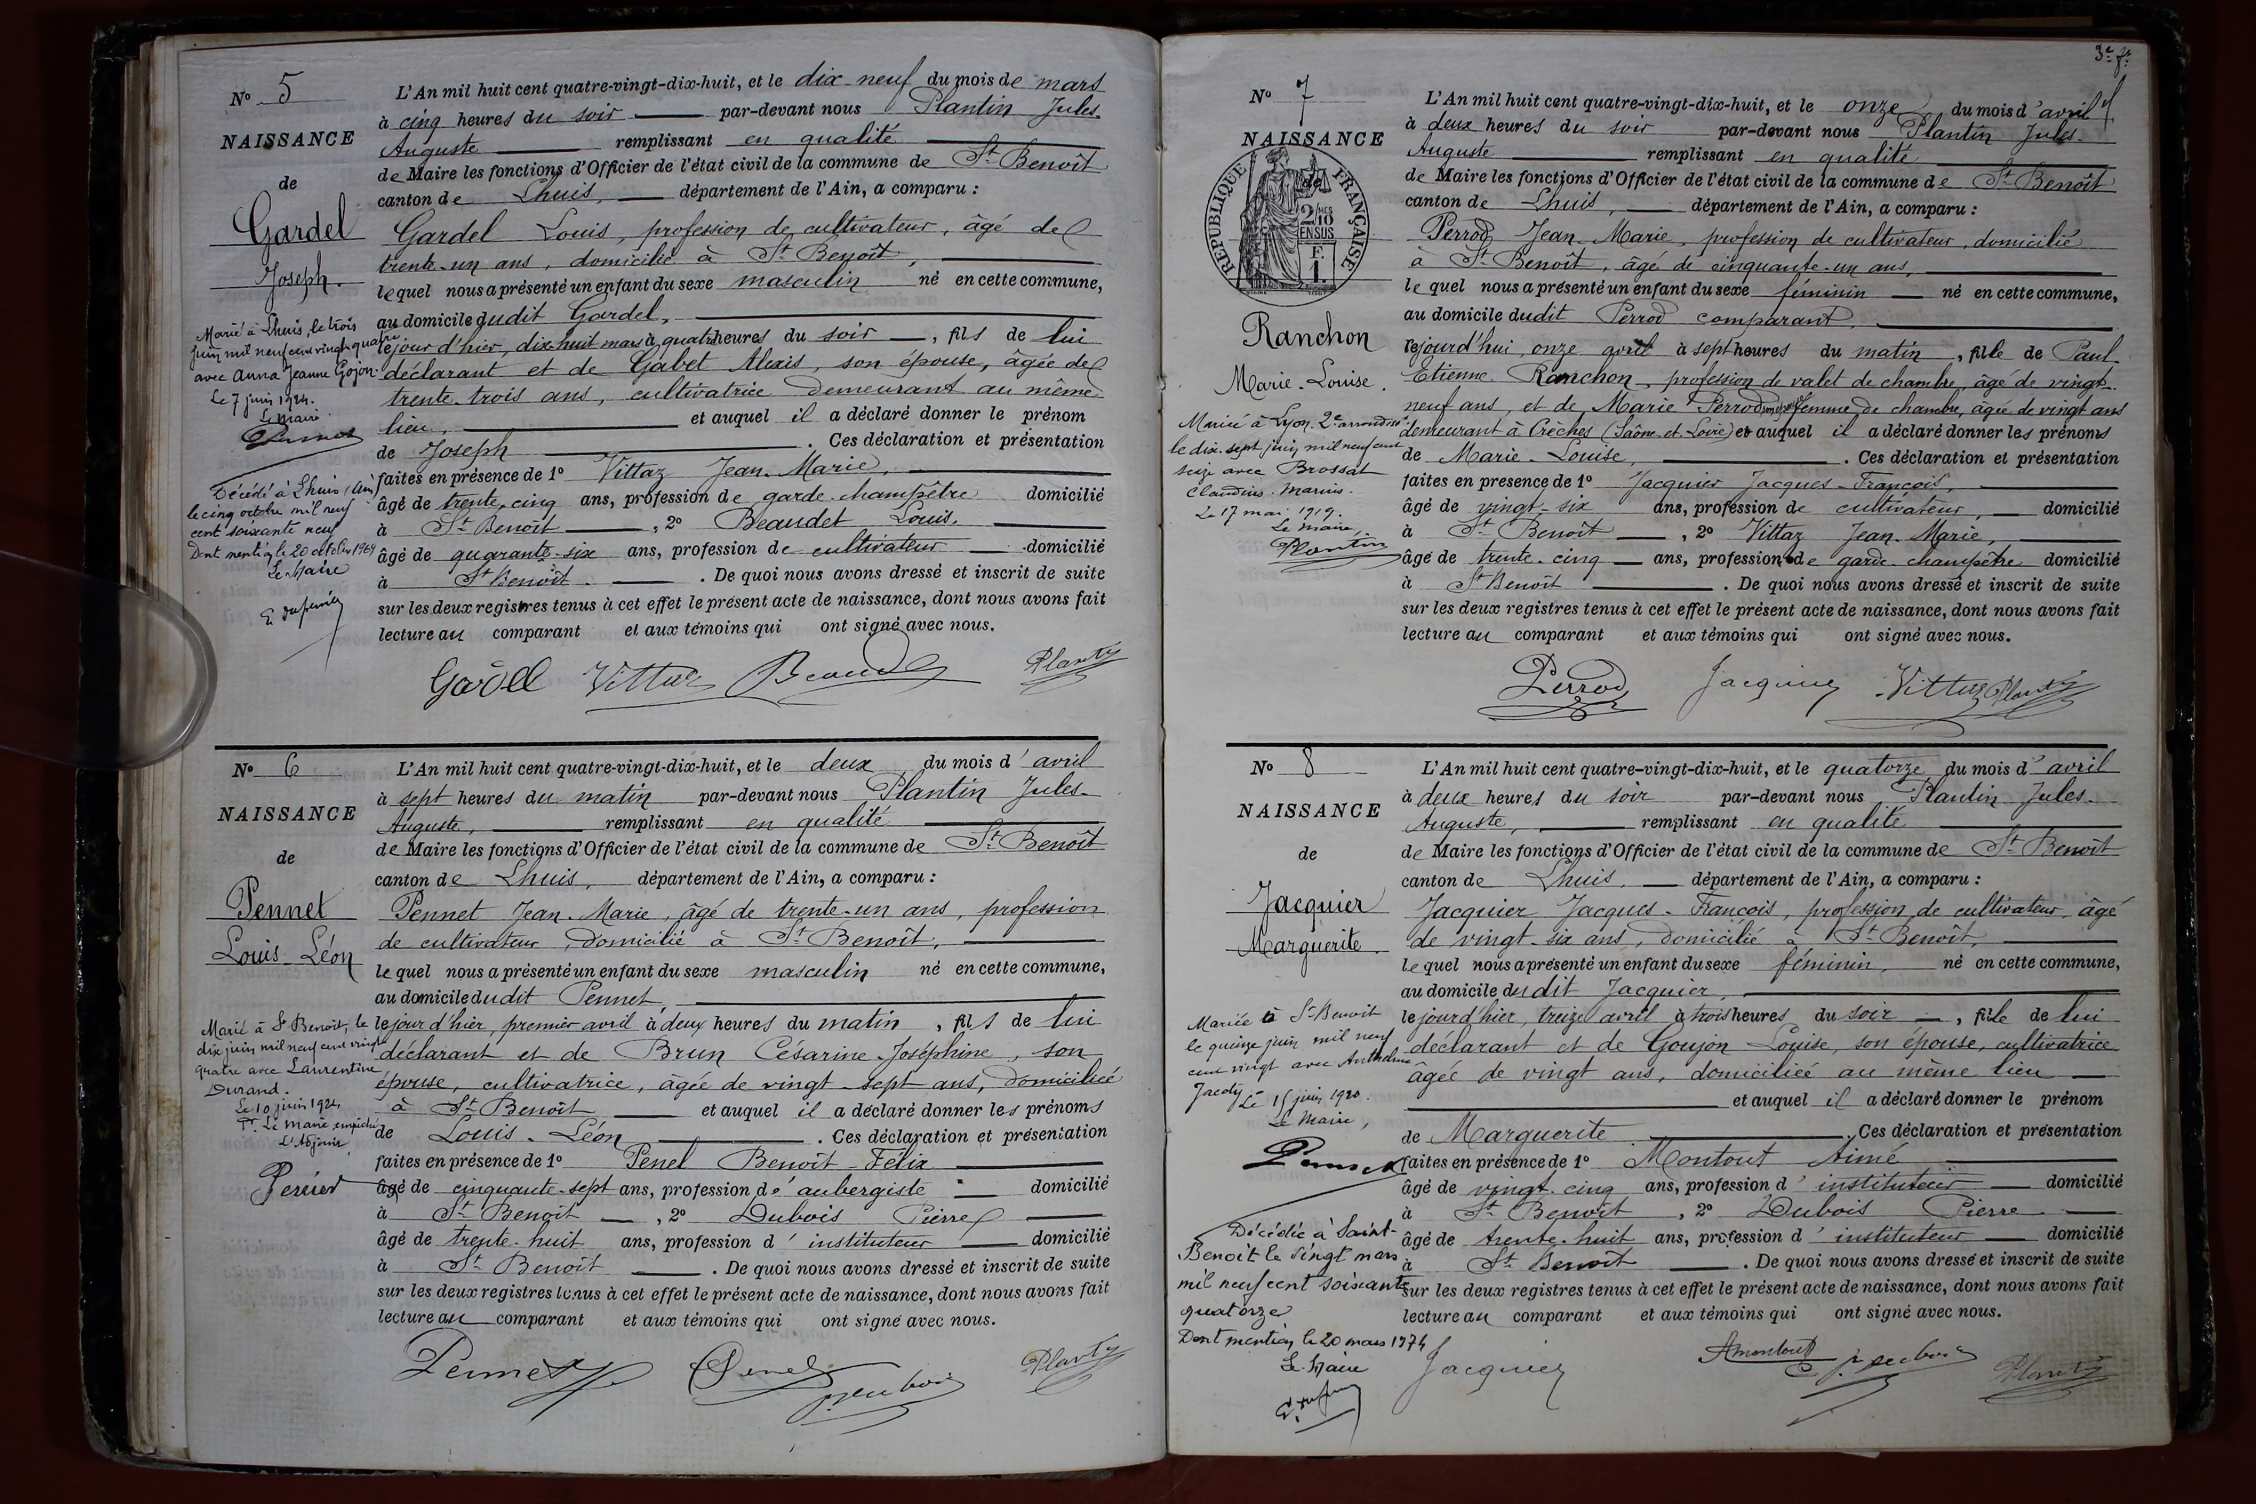 N° 5
NAISSANCE
de
Gardel
Joseph.
Marié à Lhuis, le trois
juin mil neuf cent vingt quatre
avec Anna Jeanne Gojon.
Le 7 juin 1924.
Le Maire
Décédé à Lhuis (Ain)
le cinq octobre mil neuf
cent soixante neuf
Dont mention le 20 octobre 1969
Le Maire
L'An mil huit cent quatre-vingt-dix-huit, et le dix-neuf du mois de mars
à cinq heures du soir par-devant nous Plantin Jules-
Auguste remplissant en qualité
de Maire les fonctions d'Officier de l'état civil de la commune de St-Benoît
canton de Lhuis, département de l'Ain, a comparu :
Gardel Louis, profession de cultivateur, âgé de
trente-un ans, domicilié à St-Benoît,
lequel nous a présenté un enfant du sexe masculin né en cette commune,
au domicile dudit Gardel,
le jour d'hier, dix-huit mars à quatre heures du soir, fils de lui
déclarant et de Gabet Alexis, son épouse, âgée de
trente-trois ans, cultivatrice demeurant au même
lieu, et auquel il a déclaré donner le prénom
de Joseph. Ces déclaration et présentation
faites en présence de 1° Vittaz Jean-Marie,
âgé de trente-cinq ans, profession de garde-champêtre domicilié
à St-Benoît, 2° Beaudet Louis,
âgé de quarante-six ans, profession de cultivateur domicilié
à St-Benoît. De quoi nous avons dressé et inscrit de suite
sur les deux registres tenus à cet effet le présent acte de naissance, dont nous avons fait
lecture au comparant et aux témoins qui ont signé avec nous.
Gardel Vittaz Beaudet Plantin
N° 6
NAISSANCE
de
Pennet
Louis-Léon
Marié à St Benoit, le
dix juin mil neuf cent vingt
quatre avec Laurentine
Durand.
Le 10 juin 1924
Pr. Le Maire empêché
L'Adjoint
Perier
L'An mil huit cent quatre-vingt-dix-huit, et le deux du mois d'avril
à sept heures du matin par-devant nous Plantin Jules-
Auguste, remplissant en qualité
de Maire les fonctions d'Officier de l'état civil de la commune de St-Benoît
canton de Lhuis, département de l'Ain, a comparu :
Pennet Jean-Marie, âgé de trente-un ans, profession
de cultivateur, domicilié à St-Benoît,
lequel nous a présenté un enfant du sexe masculin né en cette commune,
au domicile dudit Pennet,
le jour d'hier, premier avril à deux heures du matin, fils de lui
déclarant et de Brun Césarine-Joséphine, son
épouse, cultivatrice, âgée de vingt-sept ans, domiciliée
à St-Benoît et auquel il a déclaré donner les prénoms
de Louis-Léon. Ces déclaration et présentation
faites en présence de 1° Penel Benoît-Félix
âgé de cinquante-sept ans, profession d'aubergiste domicilié
à St-Benoît, 2° Dubois Pierre
âgé de trente-huit ans, profession d'instituteur domicilié
à St-Benoît. De quoi nous avons dressé et inscrit de suite
sur les deux registres tenus à cet effet le présent acte de naissance, dont nous avons fait
lecture au comparant et aux témoins qui ont signé avec nous.
Pennet Penel P. Dubois Plantin
3e ft
N° 7
NAISSANCE
de
RÉPUBLIQUE FRANÇAISE
2/10 EN SUS
F. 1
Ranchon
Marie-Louise.
Mariée à Lyon 2e arrondissmt
le dix-sept juin mil neuf cent
seize avec Brossat
Claudius-Marius.
Le 17 mai 1919.
Le Maire,
Plantin
L'An mil huit cent quatre-vingt-dix-huit, et le onze du mois d'avril
à deux heures du soir par-devant nous Plantin Jules-
Auguste remplissant en qualité
de Maire les fonctions d'Officier de l'état civil de la commune de St-Benoît
canton de Lhuis, département de l'Ain, a comparu :
Perrod Jean-Marie, profession de cultivateur, domicilié
à St-Benoît, âgé de cinquante-un ans,
lequel nous a présenté un enfant du sexe féminin né en cette commune,
au domicile dudit Perrod comparant,
cejourd'hui, onze avril à sept heures du matin, fille de Paul-
Etienne Ranchon, profession de valet de chambre, âgé de vingt-
neuf ans, et de Marie Perrod son épouse femme de chambre, âgée de vingt ans
demeurant à Crèches (Saône-et-Loire) et auquel il a déclaré donner les prénoms
de Marie-Louise,. Ces déclaration et présentation
faites en présence de 1° Jacquier Jacques-François,
âgé de vingt-six ans, profession de cultivateur, domicilié
à St-Benoît, 2° Vittaz Jean-Marie,
âgé de trente-cinq ans, profession de garde-champêtre domicilié
à St-Benoît. De quoi nous avons dressé et inscrit de suite
sur les deux registres tenus à cet effet le présent acte de naissance, dont nous avons fait
lecture au comparant et aux témoins qui ont signé avec nous.
Perrod Jacquier Vittaz Plantin
N° 8
NAISSANCE
de
Jacquier
Marguerite.
Mariée à St-Benoit
le quinze juin mil neuf
cent vingt avec Anthelme
Jacoty Le 15 juin 1920.
Le Maire,
Décédée à Saint-
Benoit le vingt mars
mil neuf cent soixante
quatorze
Dont mention le 20 mars 1974
Le Maire
L'An mil huit cent quatre-vingt-dix-huit, et le quatorze du mois d'avril
à deux heures du soir par-devant nous Plantin Jules-
Auguste, remplissant en qualité
de Maire les fonctions d'Officier de l'état civil de la commune de St-Benoît
canton de Lhuis, département de l'Ain, a comparu :
Jacquier Jacques-François, profession de cultivateur, âgé
de vingt-six ans, domicilié à St-Benoît,
lequel nous a présenté un enfant du sexe féminin, né en cette commune,
au domicile dudit Jacquier,
le jour d'hier, treize avril à trois heures du soir, fille de lui
déclarant et de Goujon Louise, son épouse, cultivatrice
âgée de vingt ans, domiciliée au même lieu
et auquel il a déclaré donner le prénom
de Marguerite. Ces déclaration et présentation
faites en présence de 1° Montout Aimé
âgé de vingt-cinq ans, profession d'instituteur domicilié
à St-Benoît, 2° Dubois Pierre
âgé de trente-huit ans, profession d'instituteur domicilié
à St-Benoît. De quoi nous avons dressé et inscrit de suite
sur les deux registres tenus à cet effet le présent acte de naissance, dont nous avons fait
lecture au comparant et aux témoins qui ont signé avec nous.
Jacquier AMontout P. Dubois Plantin